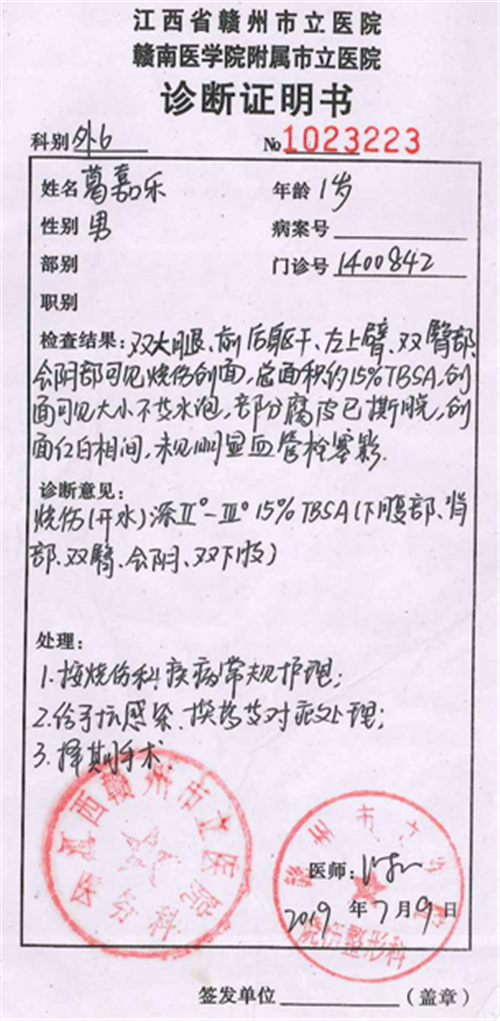 江西省赣州市立医院
赣南医学院附属市立医院
诊断证明书
科别 外6 № 1023223
姓名 葛嘉乐 年龄 1岁
性别 男 病案号
部别 门诊号 1400842
职别
检查结果: 双大腿、前后躯干、左上臂、双臀部、
会阴部可见烧伤创面,总面积约15%TBSA,创
面可见大小不等水泡,部分腐皮已撕脱,创
面红白相间,未见明显血管栓塞影.
诊断意见:
烧伤(开水)深Ⅱ°-Ⅲ° 15% TBSA(下腹部、背
部、双臀、会阴、双下肢)
处理:
1.按烧伤科疾病常规护理;
2.给予抗感染、换药等对症处理;
3.择期手术
江西赣州市立医院
医务科
赣州市立医院
烧伤整形科
医师:
2019年7月9日
签发单位 (盖章)